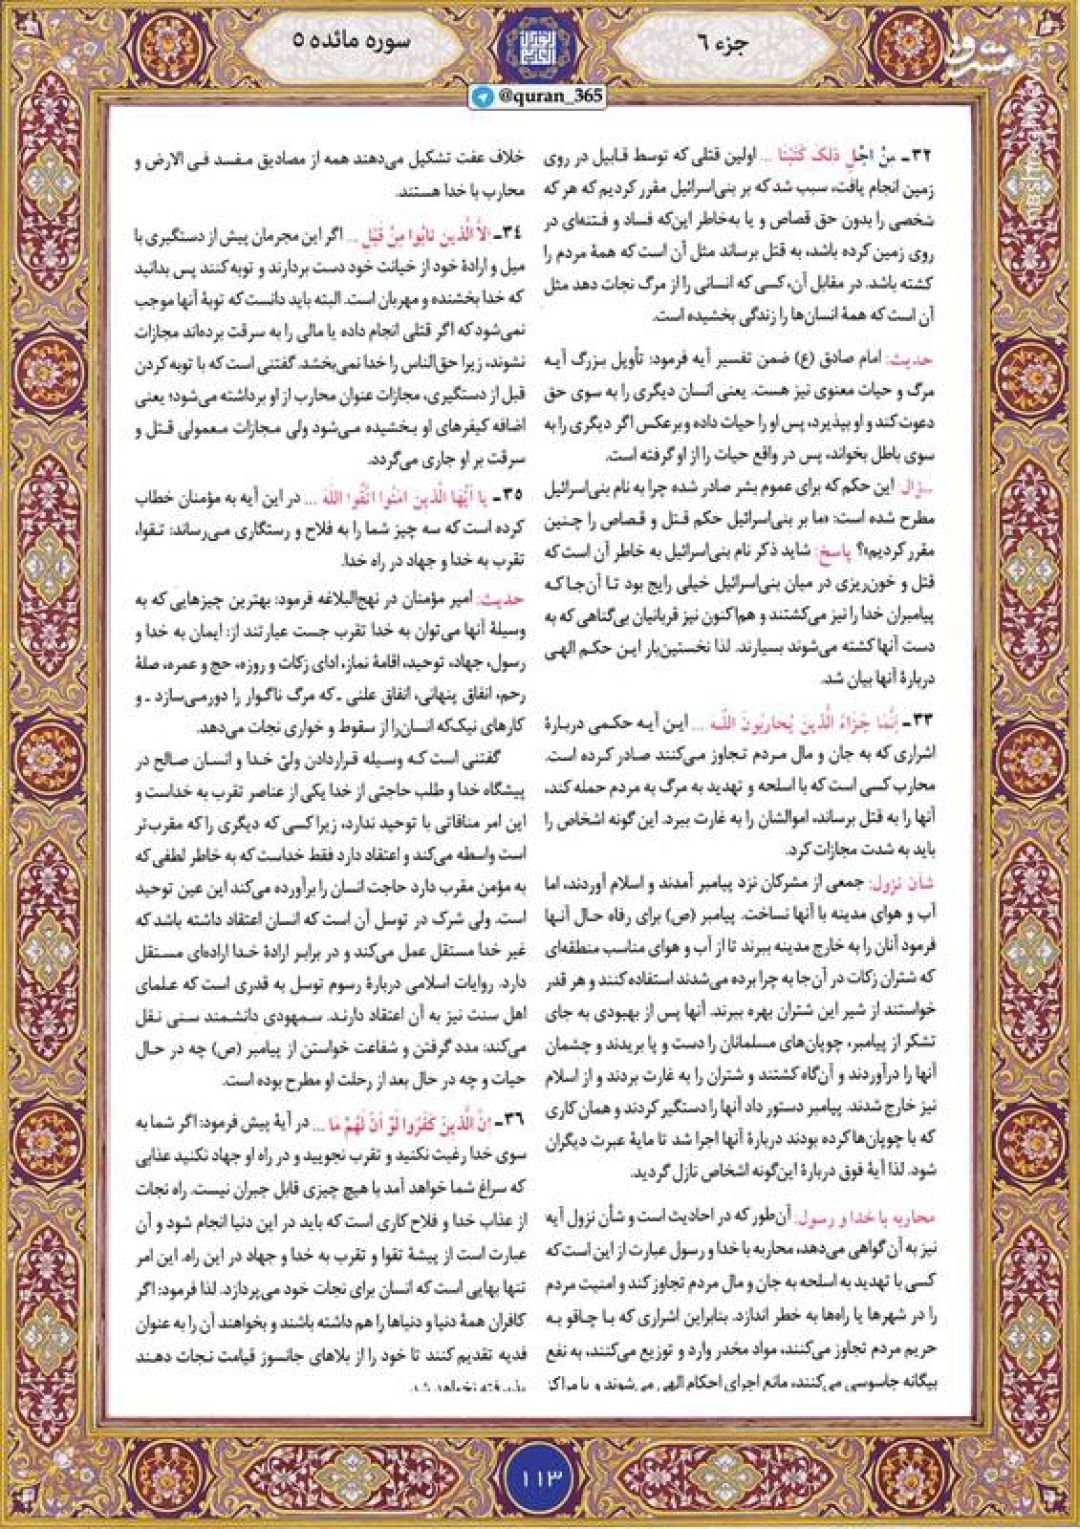 جزء ۶
سوره مائده ۵
@quran_365
۳۲ـ مِنْ اَجْلِ ذلِکَ کَتَبْنا ... اولین قتلی که توسط قابیل در روی
زمین انجام یافت، سبب شد که بر بنی‌اسرائیل مقرر کردیم که هر که
شخصی را بدون حق قصاص و یا به‌خاطر این‌که فساد و فتنه‌ای در
روی زمین کرده باشد، به قتل برساند مثل آن است که همهٔ مردم را
کشته باشد. در مقابل آن، کسی که انسانی را از مرگ نجات دهد مثل
آن است که همهٔ انسان‌ها را زندگی بخشیده است.
حدیث: امام صادق (ع) ضمن تفسیر آیه فرمود: تأویل بزرگ آیه
مرگ و حیات معنوی نیز هست. یعنی انسان دیگری را به سوی حق
دعوت کند و او بپذیرد، پس او را حیات داده و برعکس اگر دیگری را به
سوی باطل بخواند، پس در واقع حیات را از او گرفته است.
این حکم که برای عموم بشر صادر شده چرا به نام بنی‌اسرائیل
مطرح شده است: «ما بر بنی‌اسرائیل حکم قتل و قصاص را چنین
مقرر کردیم»؟ پاسخ: شاید ذکر نام بنی‌اسرائیل به خاطر آن است که
قتل و خون‌ریزی در میان بنی‌اسرائیل خیلی رایج بود تا آن‌جا که
پیامبران خدا را نیز می‌کشتند و هم‌اکنون نیز قربانیان بی‌گناهی که به
دست آنها کشته می‌شوند بسیارند. لذا نخستین‌بار این حکم الهی
دربارهٔ آنها بیان شد.
۳۳ـ اِنَّما جَزاءُ الَّذینَ یُحارِبُونَ اللّهَ ... این آیه حکمی دربارهٔ
اشراری که به جان و مال مردم تجاوز می‌کنند صادر کرده است.
محارب کسی است که با اسلحه و تهدید به مرگ به مردم حمله کند،
آنها را به قتل برساند، اموالشان را به غارت ببرد. این گونه اشخاص را
باید به شدت مجازات کرد.
شأن نزول: جمعی از مشرکان نزد پیامبر آمدند و اسلام آوردند، اما
آب و هوای مدینه با آنها نساخت. پیامبر (ص) برای رفاه حال آنها
فرمود آنان را به خارج مدینه ببرند تا از آب و هوای مناسب منطقه‌ای
که شتران زکات در آن‌جا به چرا برده می‌شدند استفاده کنند و هر قدر
خواستند از شیر این شتران بهره ببرند. آنها پس از بهبودی به جای
تشکر از پیامبر، چوپان‌های مسلمانان را دست و پا بریدند و چشمان
آنها را درآوردند و آن‌گاه کشتند و شتران را به غارت بردند و از اسلام
نیز خارج شدند. پیامبر دستور داد آنها را دستگیر کردند و همان کاری
که با چوپان‌ها کرده بودند دربارهٔ آنها اجرا شد تا مایهٔ عبرت دیگران
شود. لذا آیهٔ فوق دربارهٔ این‌گونه اشخاص نازل گردید.
محاربه با خدا و رسول: آن‌طور که در احادیث است و شأن نزول آیه
نیز به آن گواهی می‌دهد، محاربه با خدا و رسول عبارت از این است که
کسی با تهدید به اسلحه به جان و مال مردم تجاوز کند و امنیت مردم
را در شهرها یا راه‌ها به خطر اندازد. بنابراین اشراری که با چاقو به
حریم مردم تجاوز می‌کنند، مواد مخدر وارد و توزیع می‌کنند، به نفع
بیگانه جاسوسی می‌کنند، مانع اجرای احکام الهی می‌شوند و یا مراکز
خلاف عفت تشکیل می‌دهند همه از مصادیق مفسد فی الارض و
محارب با خدا هستند.
۳۴ـ اِلاَّ الَّذینَ تابُوا مِنْ قَبْلِ ... اگر این مجرمان پیش از دستگیری با
میل و ارادهٔ خود از خیانت خود دست بردارند و توبه کنند پس بدانید
که خدا بخشنده و مهربان است. البته باید دانست که توبهٔ آنها موجب
نمی‌شود که اگر قتلی انجام داده یا مالی را به سرقت برده‌اند مجازات
نشوند، زیرا حق‌الناس را خدا نمی‌بخشد. گفتنی است که با توبه کردن
قبل از دستگیری، مجازات عنوان محارب از او برداشته می‌شود؛ یعنی
اضافه کیفرهای او بخشیده می‌شود ولی مجازات معمولی قتل و
سرقت بر او جاری می‌گردد.
۳۵ـ یا اَیُّهَا الَّذینَ امَنُوا اتَّقُوا اللّهَ ... در این آیه به مؤمنان خطاب
کرده است که سه چیز شما را به فلاح و رستگاری می‌رساند: تقوا،
تقرب به خدا و جهاد در راه خدا.
حدیث: امیر مؤمنان در نهج‌البلاغه فرمود: بهترین چیزهایی که به
وسیلهٔ آنها می‌توان به خدا تقرب جست عبارتند از: ایمان به خدا و
رسول، جهاد، توحید، اقامهٔ نماز، ادای زکات و روزه، حج و عمره، صلهٔ
رحم، انفاق پنهانی، انفاق علنی ـ که مرگ ناگوار را دور می‌سازد ـ و
کارهای نیک که انسان را از سقوط و خواری نجات می‌دهد.
گفتنی است که وسیله قراردادن ولیّ خدا و انسان صالح در
پیشگاه خدا و طلب حاجتی از خدا یکی از عناصر تقرب به خداست و
این امر منافاتی با توحید ندارد، زیرا کسی که دیگری را که مقرب‌تر
است واسطه می‌کند و اعتقاد دارد فقط خداست که به خاطر لطفی که
به مؤمن مقرب دارد حاجت انسان را برآورده می‌کند این عین توحید
است. ولی شرک در توسل آن است که انسان اعتقاد داشته باشد که
غیر خدا مستقل عمل می‌کند و در برابر ارادهٔ خدا اراده‌ای مستقل
دارد. روایات اسلامی دربارهٔ رسوم توسل به قدری است که علمای
اهل سنت نیز به آن اعتقاد دارند. سمهودی دانشمند سنی نقل
می‌کند: مدد گرفتن و شفاعت خواستن از پیامبر (ص) چه در حال
حیات و چه در حال بعد از رحلت او مطرح بوده است.
۳۶ـ اِنَّ الَّذینَ کَفَرُوا لَوْ اَنَّ لَهُمْ ما ... در آیهٔ پیش فرمود: اگر شما به
سوی خدا رغبت نکنید و تقرب نجویید و در راه او جهاد نکنید عذابی
که سراغ شما خواهد آمد با هیچ چیزی قابل جبران نیست. راه نجات
از عذاب خدا و فلاح کاری است که باید در این دنیا انجام شود و آن
عبارت است از پیشهٔ تقوا و تقرب به خدا و جهاد در این راه. این امر
تنها بهایی است که انسان برای نجات خود می‌پردازد. لذا فرمود: اگر
کافران همهٔ دنیا و دنیاها را هم داشته باشند و بخواهند آن را به عنوان
فدیه تقدیم کنند تا خود را از بلاهای جانسوز قیامت نجات دهند
پذیرفته نخواهد شد.
۱۱۳